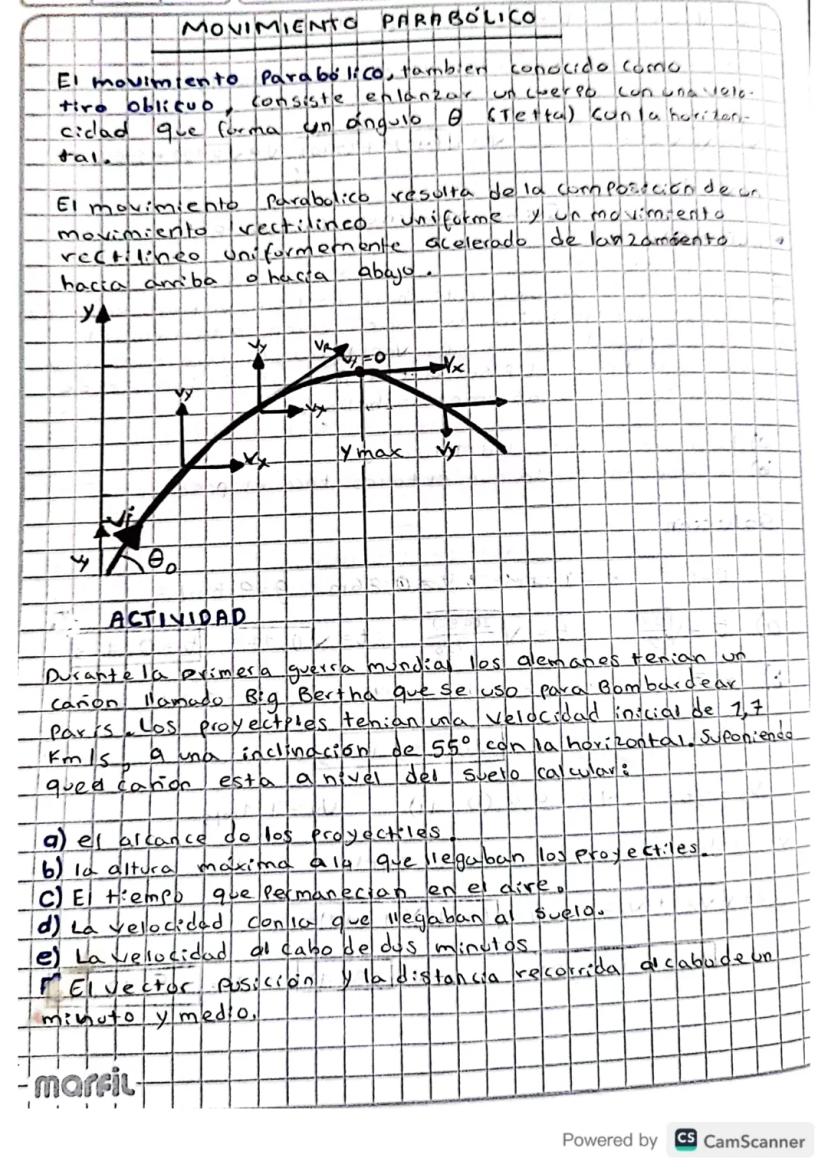 MOVIMIENTO PARABÓLICO
El movimiento Parabólico, tambien conocido como
tiro oblicuo, consiste en lanzar un cuerpo con una velo-
cidad que forma un ángulo θ (Tetta) con la horizon-
tal.
El movimiento parabolico resulta de la composición de un
movimiento rectilineo uniforme y un movimiento
rectilineo uniformemente acelerado de lanzamiento
hacia arriba o hacia abajo.
y
Vy
VR
Vy=0
Vx
Vy
Vx
Vx
y max
Vy
Vi
Vy
θ₀
ACTIVIDAD
Durante la primera guerra mundial los alemanes tenian un
cañon llamado Big Bertha que se uso para Bombardear
Paris. Los proyectiles tenian una velocidad inicial de 1,7
Km/s, a una inclinación de 55° con la horizontal. Suponiendo
que el cañon esta a nivel del suelo calcular:
a) el alcance de los proyectiles.
b) la altura máxima a la que llegaban los proyectiles.
c) El tiempo que permanecian en el aire.
d) La velocidad con la que llegaban al suelo.
e) La velocidad al cabo de dos minutos
F El vector posición y la distancia recorrida al cabo de un
minuto y medio.
marfil
Powered by CS CamScanner